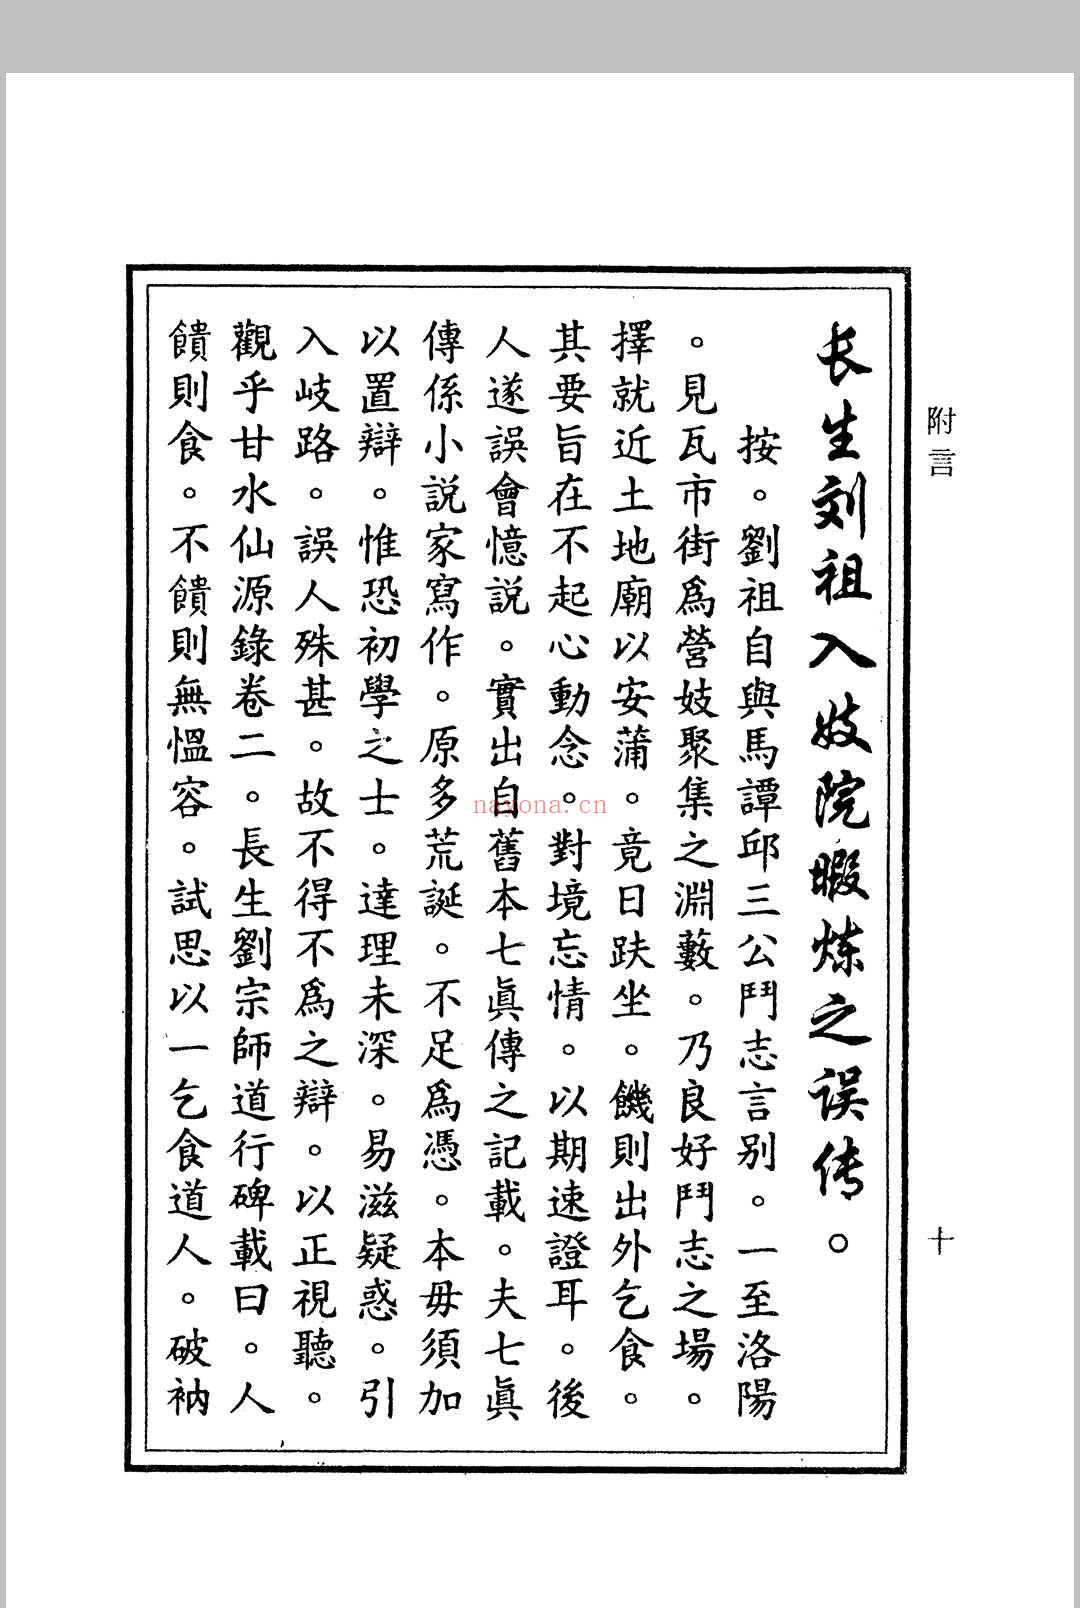 附言
十
长生刘祖入妓院暇炼之误传。
按。劉祖自與馬譚邱三公鬥志言别。一至洛陽
。見瓦市街爲營妓聚集之淵藪。乃良好鬥志之場。
擇就近土地廟以安蒲。竟日趺坐。饑則出外乞食。
其要旨在不起心動念。對境忘情。以期速證耳。後
人遂誤會憶説。實出自舊本七眞傳之記載。夫七眞
傳係小説家寫作。原多荒誕。不足爲憑。本毋須加
以置辯。惟恐初學之士。達理未深。易滋疑惑。引
入岐路。誤人殊甚。故不得不爲之辯。以正視聽。
觀乎甘水仙源錄卷二。長生劉宗師道行碑載曰。人
饋則食。不饋則無慍容。試思以一乞食道人。破衲
nayona.cn